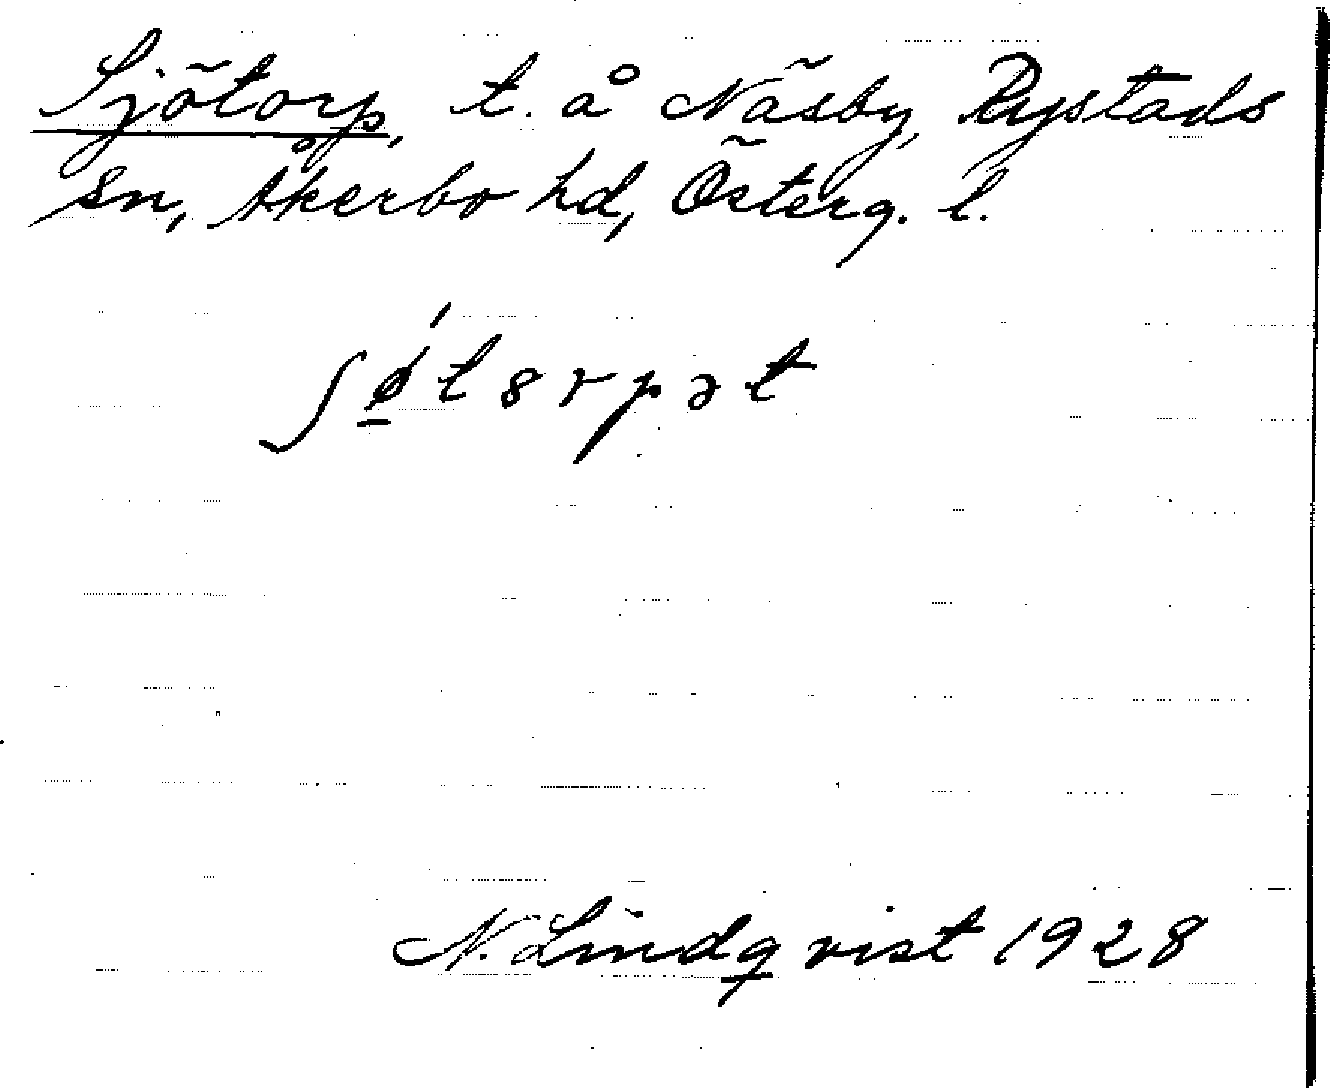 Sjötorp, t. å Näsby, Rystads
sn, Åkerbo hd, Österg. l.
ʃǿ̱t8rpət
N. Lindqvist 1928